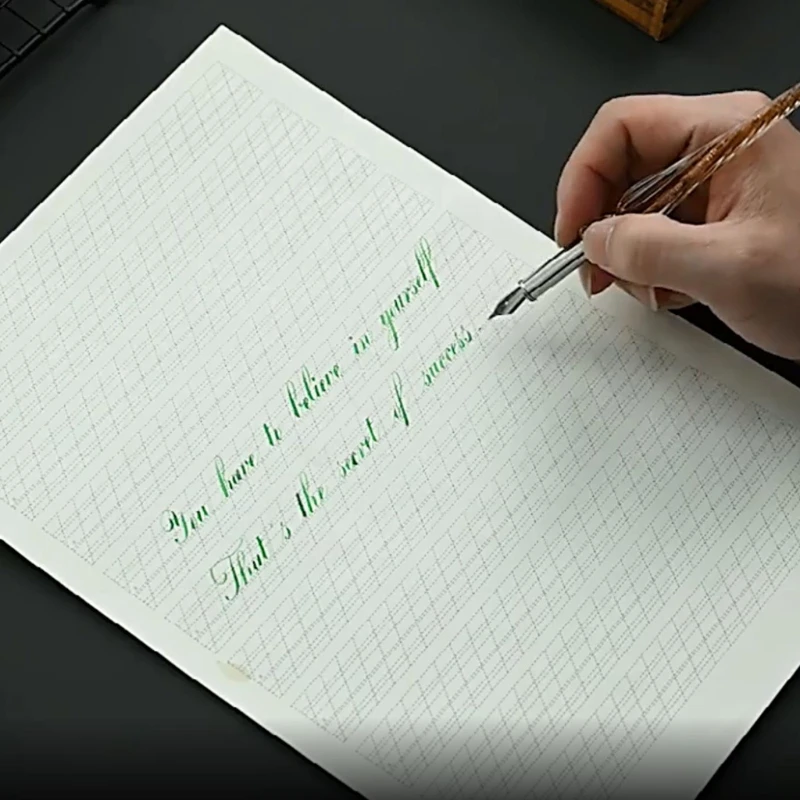 You have to believe in yourself
That's the secret of success.